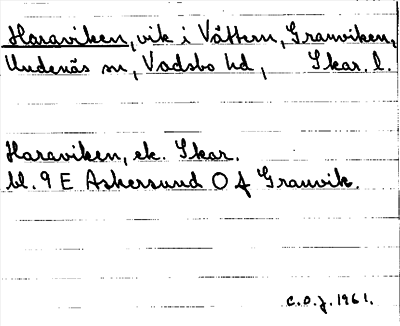 Haraviken, vik i Vättern, Granviken,
Undenäs sn, Vadsbo hd, Skar. l.
Haraviken, ek. Skar.
bl. 9 E Askersund O f Granvik.
C.O.J. 1961.